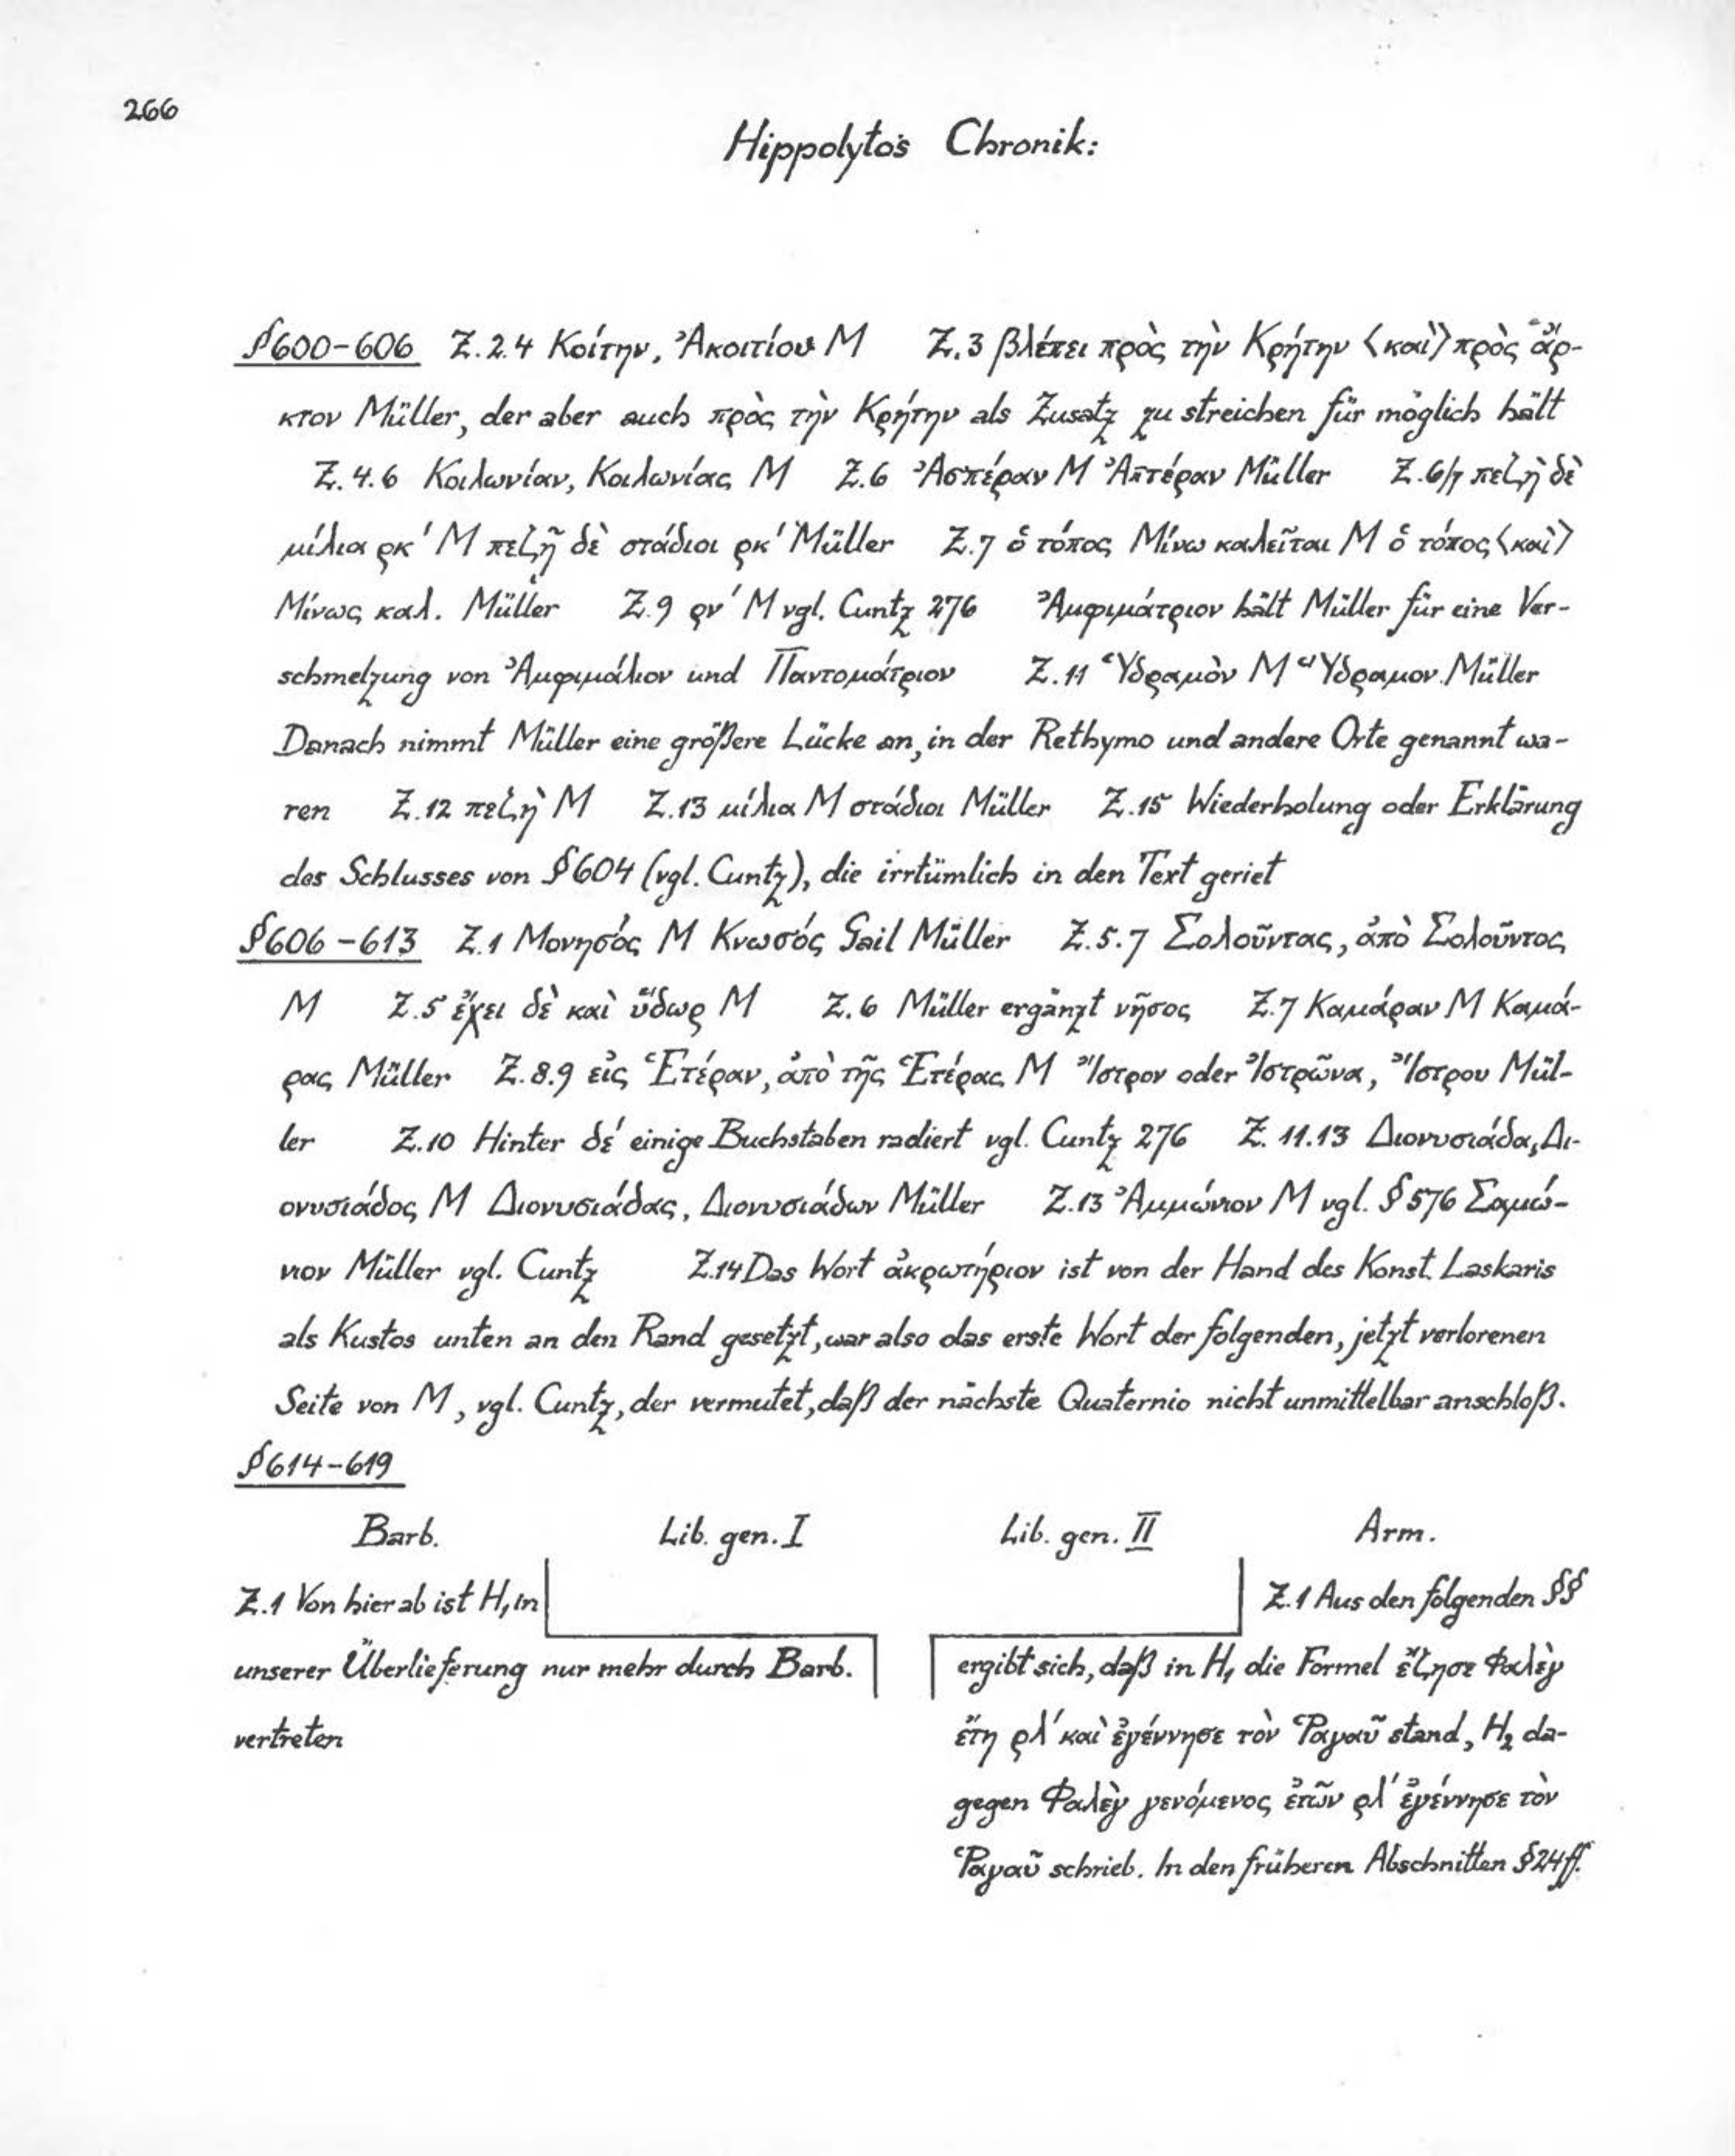 266
Hippolytos Chronik:
§600-606 Z.2.4 Κοίτην, Ἀκοιτίου M Z.3 βλέπει πρὸς τὴν Κρήτην <καὶ> πρὸς ἄρ-
κτον Müller, der aber auch πρὸς τὴν Κρήτην als Zusatz zu streichen für möglich hält
Z.4.6 Κοιλωνίαν, Κοιλωνίας M Z.6 Ἀσπέραν M Ἀπτέραν Müller Z.6/7 πεζὴ δὲ
μίλια ρκ' M πεζῇ δὲ στάδιοι ρκ' Müller Z.7 ὁ τόπος Μίνω καλεῖται M ὁ τόπος <καὶ>
Μίνως καλ. Müller Z.9 ρν' M vgl. Cuntz 276 Ἀμφιμάτριον hält Müller für eine Ver-
schmelzung von Ἀμφιμάλιον und Παντομάτριον Z.11 Ὑδραμὸν M Ὕδραμον Müller
Danach nimmt Müller eine größere Lücke an, in der Rethymo und andere Orte genannt wa-
ren Z.12 πεζὴ M Z.13 μίλια M στάδιοι Müller Z.15 Wiederholung oder Erklärung
des Schlusses von §604 (vgl. Cuntz), die irrtümlich in den Text geriet
§606-613 Z.1 Μονησός M Κνωσός Gail Müller Z.5.7 Σολοῦντας, ἀπὸ Σολοῦντος
M Z.5 ἔχει δὲ καὶ ὕδωρ M Z.6 Müller ergänzt νῆσος Z.7 Καμάραν M Καμά-
ρας Müller Z.8.9 εἰς Ἑτέραν, ἀπὸ τῆς Ἑτέρας M Ἴστρον oder Ἰστρῶνα, Ἴστρου Mül-
ler Z.10 Hinter δέ einige Buchstaben radiert vgl. Cuntz 276 Z.11.13 Διονυσιάδα, Δι-
ονυσιάδος M Διονυσιάδας, Διονυσιάδων Müller Z.13 Ἀμμώνιον M vgl. §576 Σαμώ-
νιον Müller vgl. Cuntz Z.14 Das Wort ἀκρωτήριον ist von der Hand des Konst. Laskaris
als Kustos unten an den Rand gesetzt, war also das erste Wort der folgenden, jetzt verlorenen
Seite von M, vgl. Cuntz, der vermutet, daß der nächste Quaternio nicht unmittelbar anschloß.
§614-619
Barb. Lib. gen. I Lib. gen. II Arm.
Z.1 Von hier ab ist H₁ in
unserer Überlieferung nur mehr durch Barb.
vertreten
Z.1 Aus den folgenden §§
ergibt sich, daß in H₁ die Formel ἔζησε Φαλὲγ
ἔτη ρλ' καὶ ἐγέννησε τὸν Ῥαγαῦ stand, H₂ da-
gegen Φαλὲγ γενόμενος ἐτῶν ρλ' ἐγέννησε τὸν
Ῥαγαῦ schrieb. In den früheren Abschnitten §24ff.